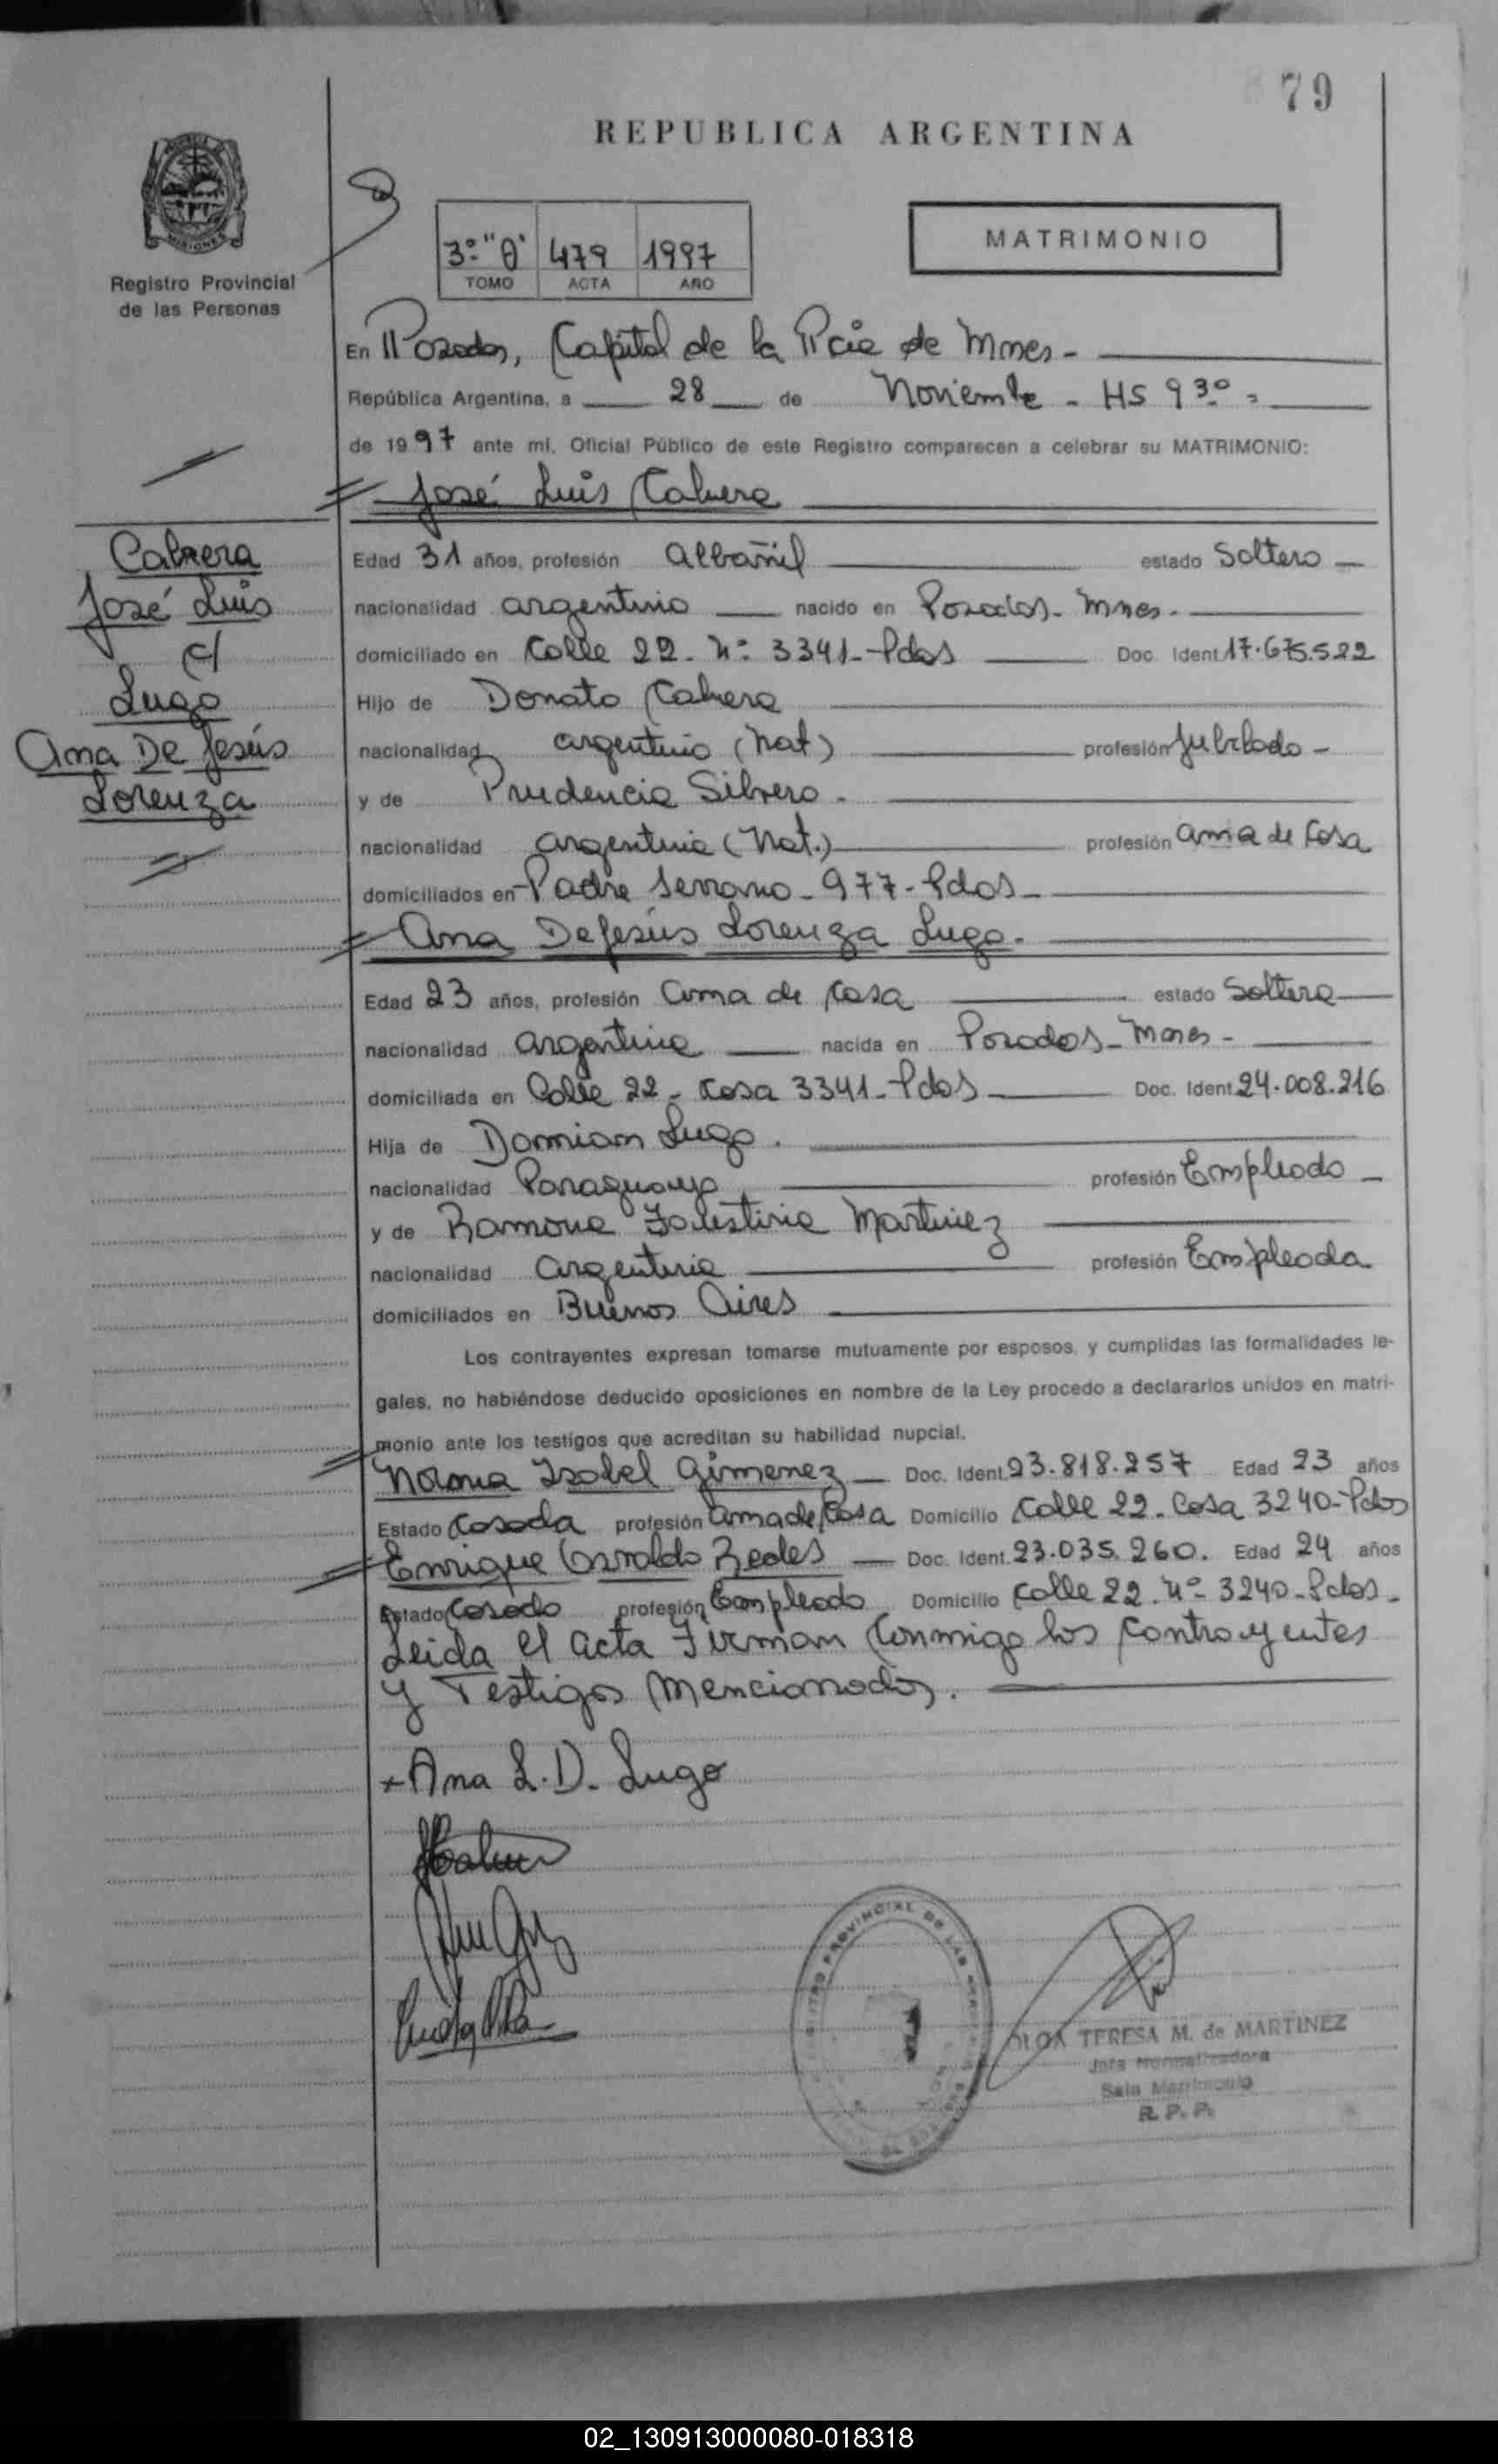 79
REPUBLICA ARGENTINA
MISIONES
Registro Provincial
de las Personas
3º "A" 479 1997
TOMO ACTA AÑO
MATRIMONIO
En Posadas, Capital de la Pcia de Mnes -
República Argentina, a 28 de Noviembre - HS 9 30 -
de 1997 ante mi, Oficial Público de este Registro comparecen a celebrar su MATRIMONIO:
José Luis Cabrera
Cabrera
José Luis
c/
Lugo
Ana De Jesús
Lorenza
Edad 31 años, profesión Albañil estado Soltero
nacionalidad argentino nacido en Posadas - Mnes -
domiciliado en Calle 22 - Nº 3341 - Pdas Doc. Ident. 17.675.522
Hijo de Donato Cabrera
nacionalidad argentino (Nat) profesión Jubilado -
y de Prudencia Silvero -
nacionalidad argentina (Nat.) profesión ama de Casa
domiciliados en Padre Serrano - 977 - Pdas -
Ana De Jesús Lorenza Lugo -
Edad 23 años, profesión ama de Casa estado Soltera
nacionalidad argentina nacida en Posadas - Mnes -
domiciliada en Calle 22 - Casa 3341 - Pdas Doc. Ident. 24.008.216
Hija de Damian Lugo .
nacionalidad Paraguaya profesión Empleado -
y de Ramona Martinez
nacionalidad argentina profesión Empleada
domiciliados en Buenos Aires
Los contrayentes expresan tomarse mutuamente por esposos, y cumplidas las formalidades le-
gales, no habiéndose deducido oposiciones en nombre de la Ley procedo a declararlos unidos en matri-
monio ante los testigos que acreditan su habilidad nupcial.
Norma Isabel Gimenez Doc. Ident. 23.818.257 Edad 23 años
Estado Casada profesión ama de Casa Domicilio Calle 22 - Casa 3240 - Pdas
Enrique Osvaldo Doc. Ident. 23.035.260. Edad 24 años
Estado Casado profesión Empleado Domicilio Calle 22 . Nº 3240 - Pdas -
Leida el acta Firman Conmigo los Contrayentes
y Testigos Mencionados.
Ana L. D. Lugo
OLGA TERESA M. de MARTINEZ
Jefa Normalizadora
Sala Matrimonio
R. P. P.
02_130913000080-018318